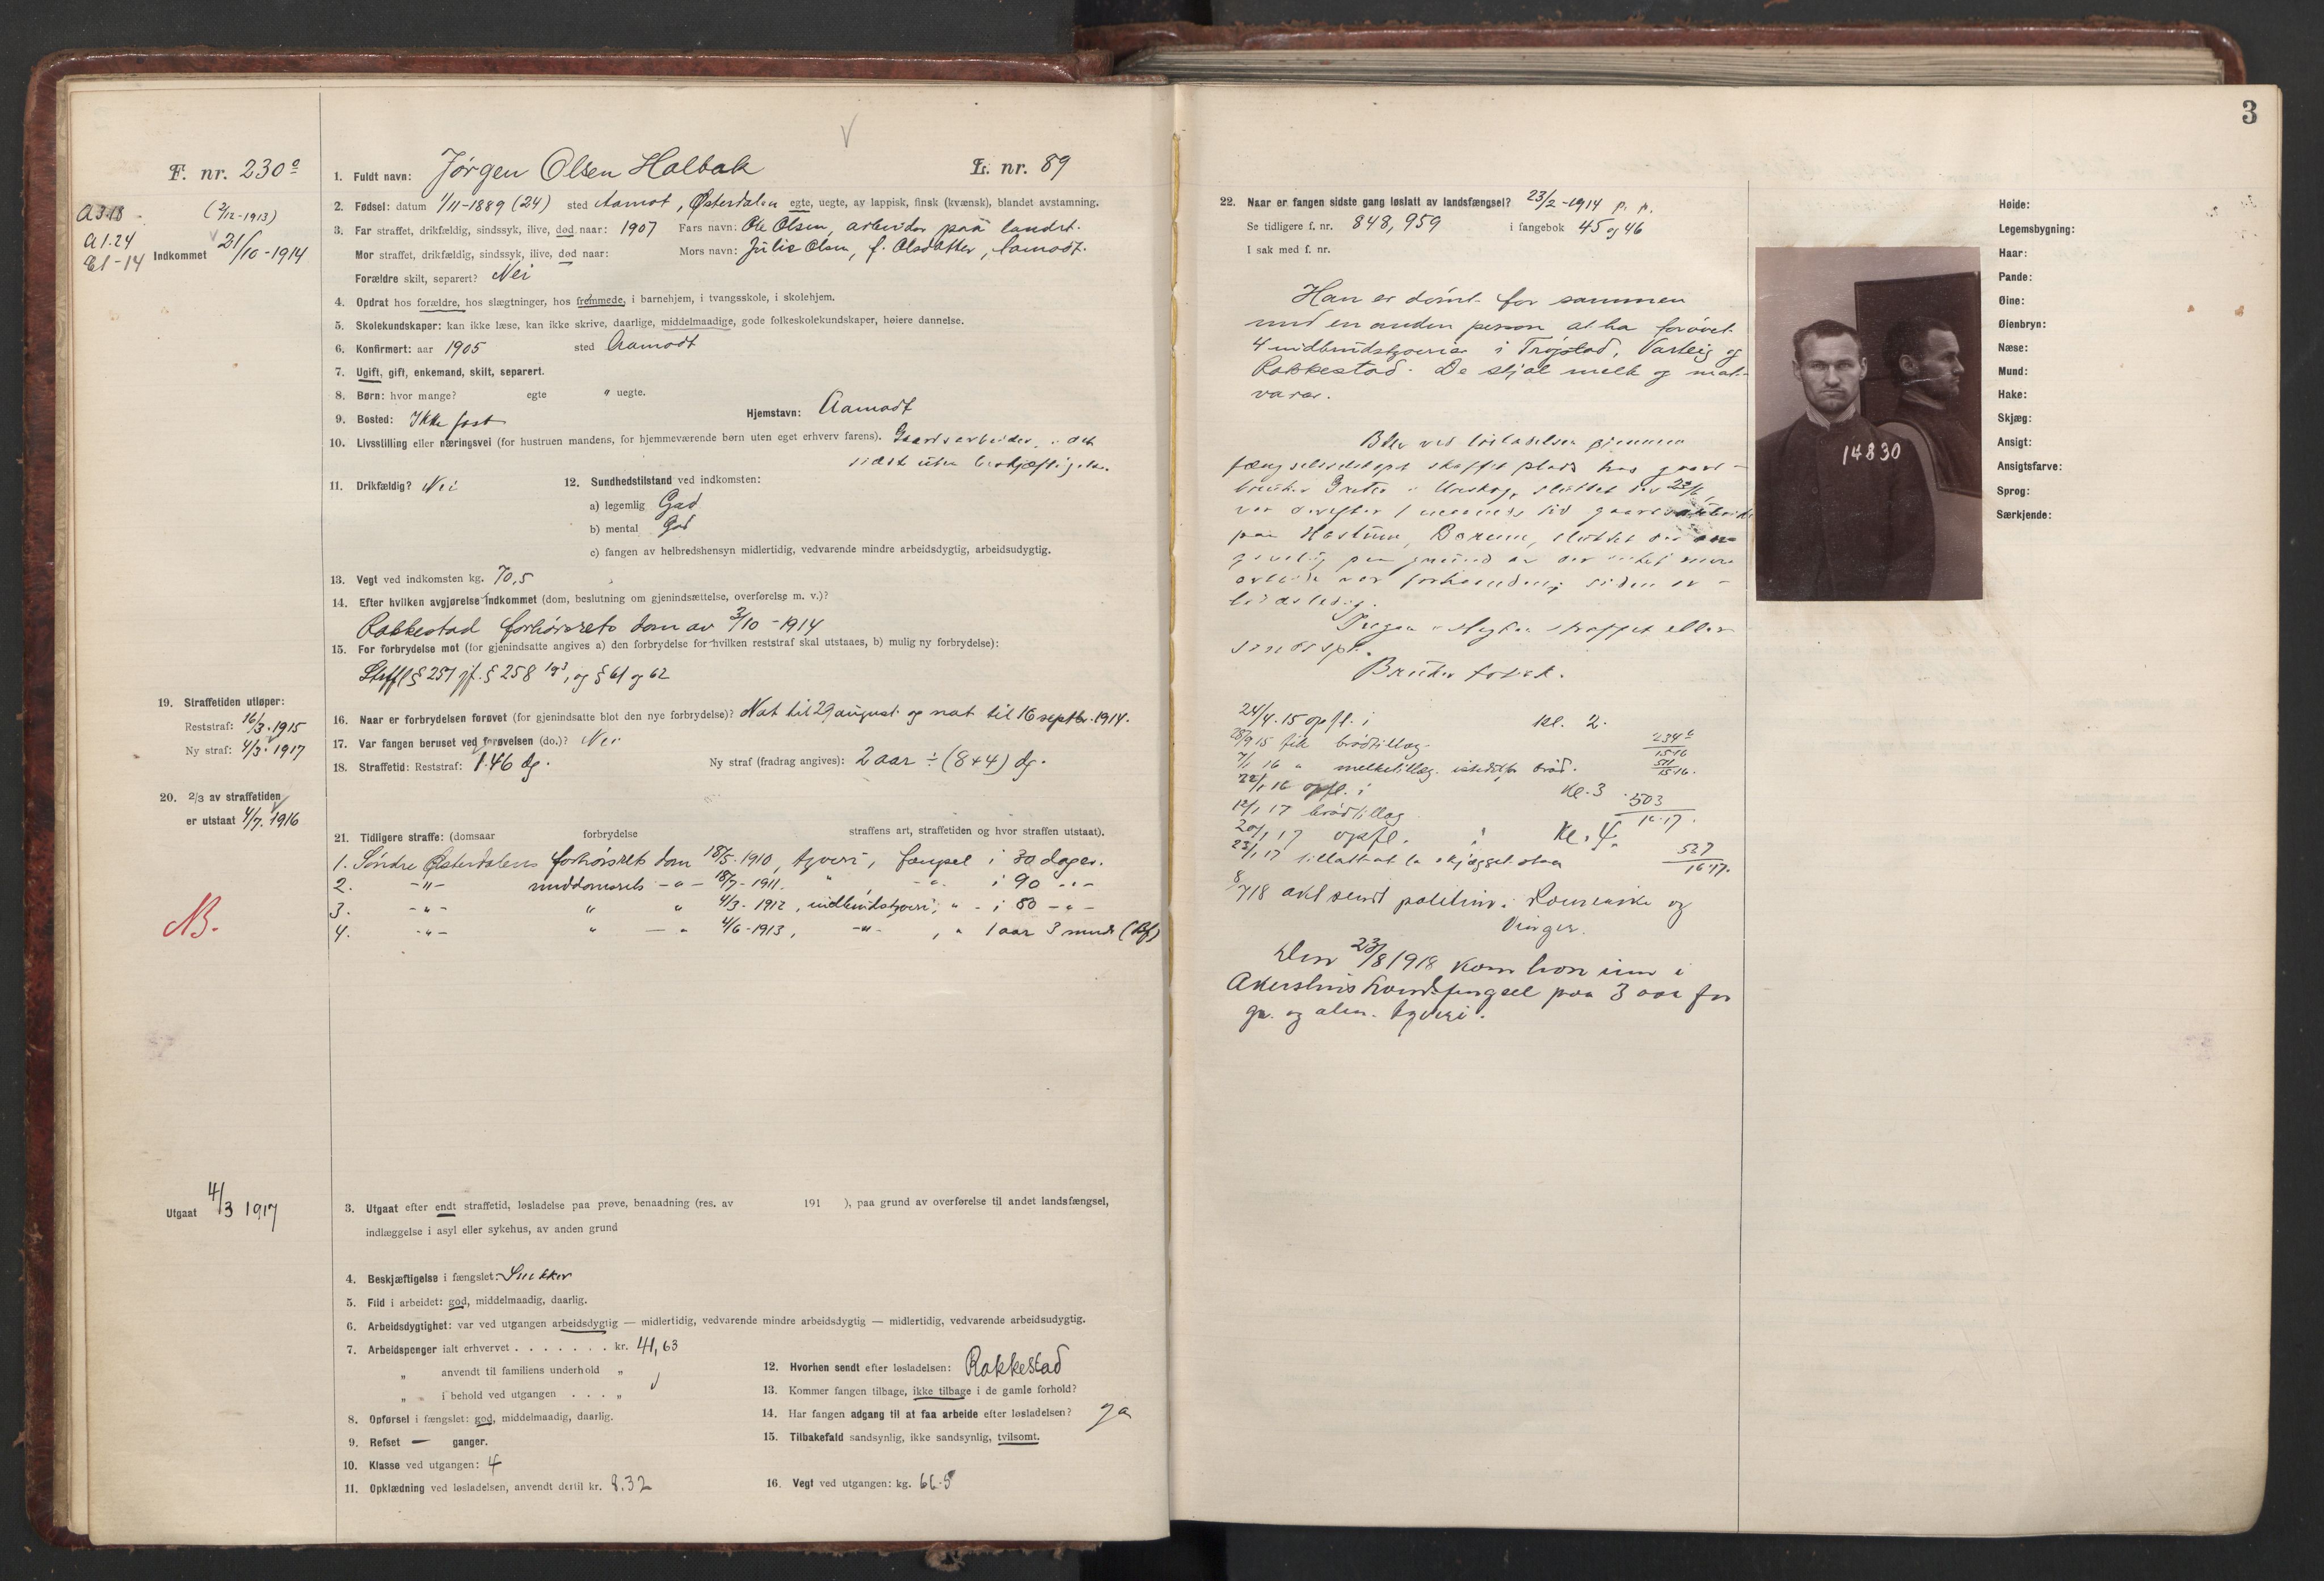 F. nr. 230a
A 3.18
A 1.24
(2/12-1913)
Indkommet 21/10-1914
1. Fuldt navn: Jørgen Olsen Halbak
L. nr. 89
2. Fødsel: datum 1/11-1889 (24) sted Aamot, Østerdalen egte, uegte, av lappisk, finsk (kvænsk), blandet avstamning.
3. Far straffet, drikfældig, sindssyk, ilive, død naar: 1907 Fars navn: Ole Olsen, arbeider paa landet.
Mor straffet, drikfældig, sindssyk, ilive, død naar: Mors navn: Julie Olsen, f. Olsdatter, Aamodt.
Forældre skilt, separert? Nei
4. Opdrat hos forældre, hos slægtninger, hos fremmede, i barnehjem, i tvangsskole, i skolehjem.
5. Skolekundskaper: kan ikke læse, kan ikke skrive, daarlige, middelmaadige, gode folkeskolekundskaper, høiere dannelse.
6. Konfirmert: aar 1905 sted Aamodt
7. Ugift, gift, enkemand, skilt, separert.
8. Børn: hvor mange? egte " uegte.
9. Bosted: Ikke fast Hjemstavn: Aamodt
10. Livsstilling eller næringsvei (for hustruen mandens, for hjemmeværende børn uten eget erhverv farens). Gaardsarbeider, i det
sidste uten beskjæftigelse.
11. Drikfældig? Nei 12. Sundhedstilstand ved indkomsten:
a) legemlig God
b) mental God
c) fangen av helbredshensyn midlertidig, vedvarende mindre arbeidsdygtig, arbeidsudygtig.
13. Vegt ved indkomsten kg. 70,5
14. Efter hvilken avgjørelse indkommet (dom, beslutning om gjenindsættelse, overførelse m. v.)?
Rakkestad forhørsrets dom av 3/10-1914
15. For forbrydelse mot (for gjenindsatte angives a) den forbrydelse for hvilken reststraf skal utstaaes, b) mulig ny forbrydelse):
Strfl § 257 jf. § 258 1g3, og § 61 og 62
19. Straffetiden utløper:
Reststraf: 16/3-1915
Ny straf: 4/3-1917
16. Naar er forbrydelsen forøvet (for gjenindsatte blot den nye forbrydelse)? Nat til 29 august og nat til 16 septbr. 1914.
17. Var fangen beruset ved forøvelsen (do.)? Nei
18. Straffetid: Reststraf: 146 dg. Ny straf (fradrag angives): 2 aar ÷ (8+4) dg.
20. 2/3 av straffetiden
er utstaat 4/7. 1916
21. Tidligere straffe: (domsaar forbrydelse straffens art, straffetiden og hvor straffen utstaat).
1. Søndre Østerdalens forhørsrets dom 18/5-1910, tyveri, fængsel i 30 dager.
2. -"- meddomsrets -"- 18/7-1911. " -"- i 90 -"-
3. -"- " " 4/3-1912, indbrudstyveri, " - i 80 -"-
4. -"- " — " 4/6-1913, -"-, " 1 aar 3 mndr (Bf)
NB.
Utgaat 4/3 1917
3. Utgaat efter endt straffetid, løsladelse paa prøve, benaadning (res. av 191 ), paa grund av overførelse til andet landsfængsel,
indlæggelse i asyl eller sykehus, av anden grund
4. Beskjæftigelse i fængslet: Snekker
5. Flid i arbeidet: god, middelmaadig, daarlig.
6. Arbeidsdygtighet: var ved utgangen arbeidsdygtig — midlertidig, vedvarende mindre arbeidsdygtig — midlertidig, vedvarende arbeidsudygtig.
7. Arbeidspenger ialt erhvervet . . . . . . . kr. 41,63
" anvendt til familiens underhold "
" i behold ved utgangen . . . "
8. Opførsel i fængslet: god, middelmaadig, daarlig.
9. Refset — ganger.
10. Klasse ved utgangen: 4
11. Opklædning ved løsladelsen, anvendt dertil kr. 8.32
12. Hvorhen sendt efter løsladelsen: Rakkestad
13. Kommer fangen tilbage, ikke tilbage i de gamle forhold?
14. Har fangen adgang til at faa arbeide efter løsladelsen? ja
15. Tilbakefald sandsynlig, ikke sandsynlig, tvilsomt.
16. Vegt ved utgangen: kg. 66.5
3
22. Naar er fangen sidste gang løslatt av landsfængsel? 23/2-1914 p. p.
Se tidligere f. nr. 848, 959 i fangebok 45 og 46
I sak med f. nr.
Han er dømt for sammen
med en anden person at ha forøvet
4 indbrudstyverier i Trøgstad, Varteig og
Rakkestad. De stjal melk og mat-
varer.
Blev ved løsladelsen gjennem
fængselsselskapet skaffet plads hos gaard-
bruker i Urskog, sluttet der
var derefter 1 maaneds tid gaardsarbeider
paa Haslum, Bærum, sluttet der an-
givelig paa grund av der intet mere
arbeide var forhaanden, siden ar-
beidsledig.
Ingen slegtn. straffet eller
sindssyk.
Bruker tobak.
24/4.15 opfl. i Kl. 2.
28/9 15 fik brødtillæg. 234b/15-16
7/1 16 " melketillæg istedetfor brød. 511/15-16.
22/1 16 opfl. i Kl. 3
12/1 17 brødtillæg 503/16-17.
20/1 17 opfl. i Kl. 4.
23/1 17 tillatt at la skjægget staa 527/16-17.
8/7 18 akt sendt politim. i Romerike og
Vinger.
Den 23/8 1918 kom han inn i
Akershus landsfængsel paa 3 aar for
gr. og alm. tyveri.
14830
Høide:
Legemsbygning:
Haar:
Pande:
Øine:
Øienbryn:
Næse:
Mund:
Hake:
Skjæg:
Ansigt:
Ansigtsfarve:
Sprog:
Særkjende: